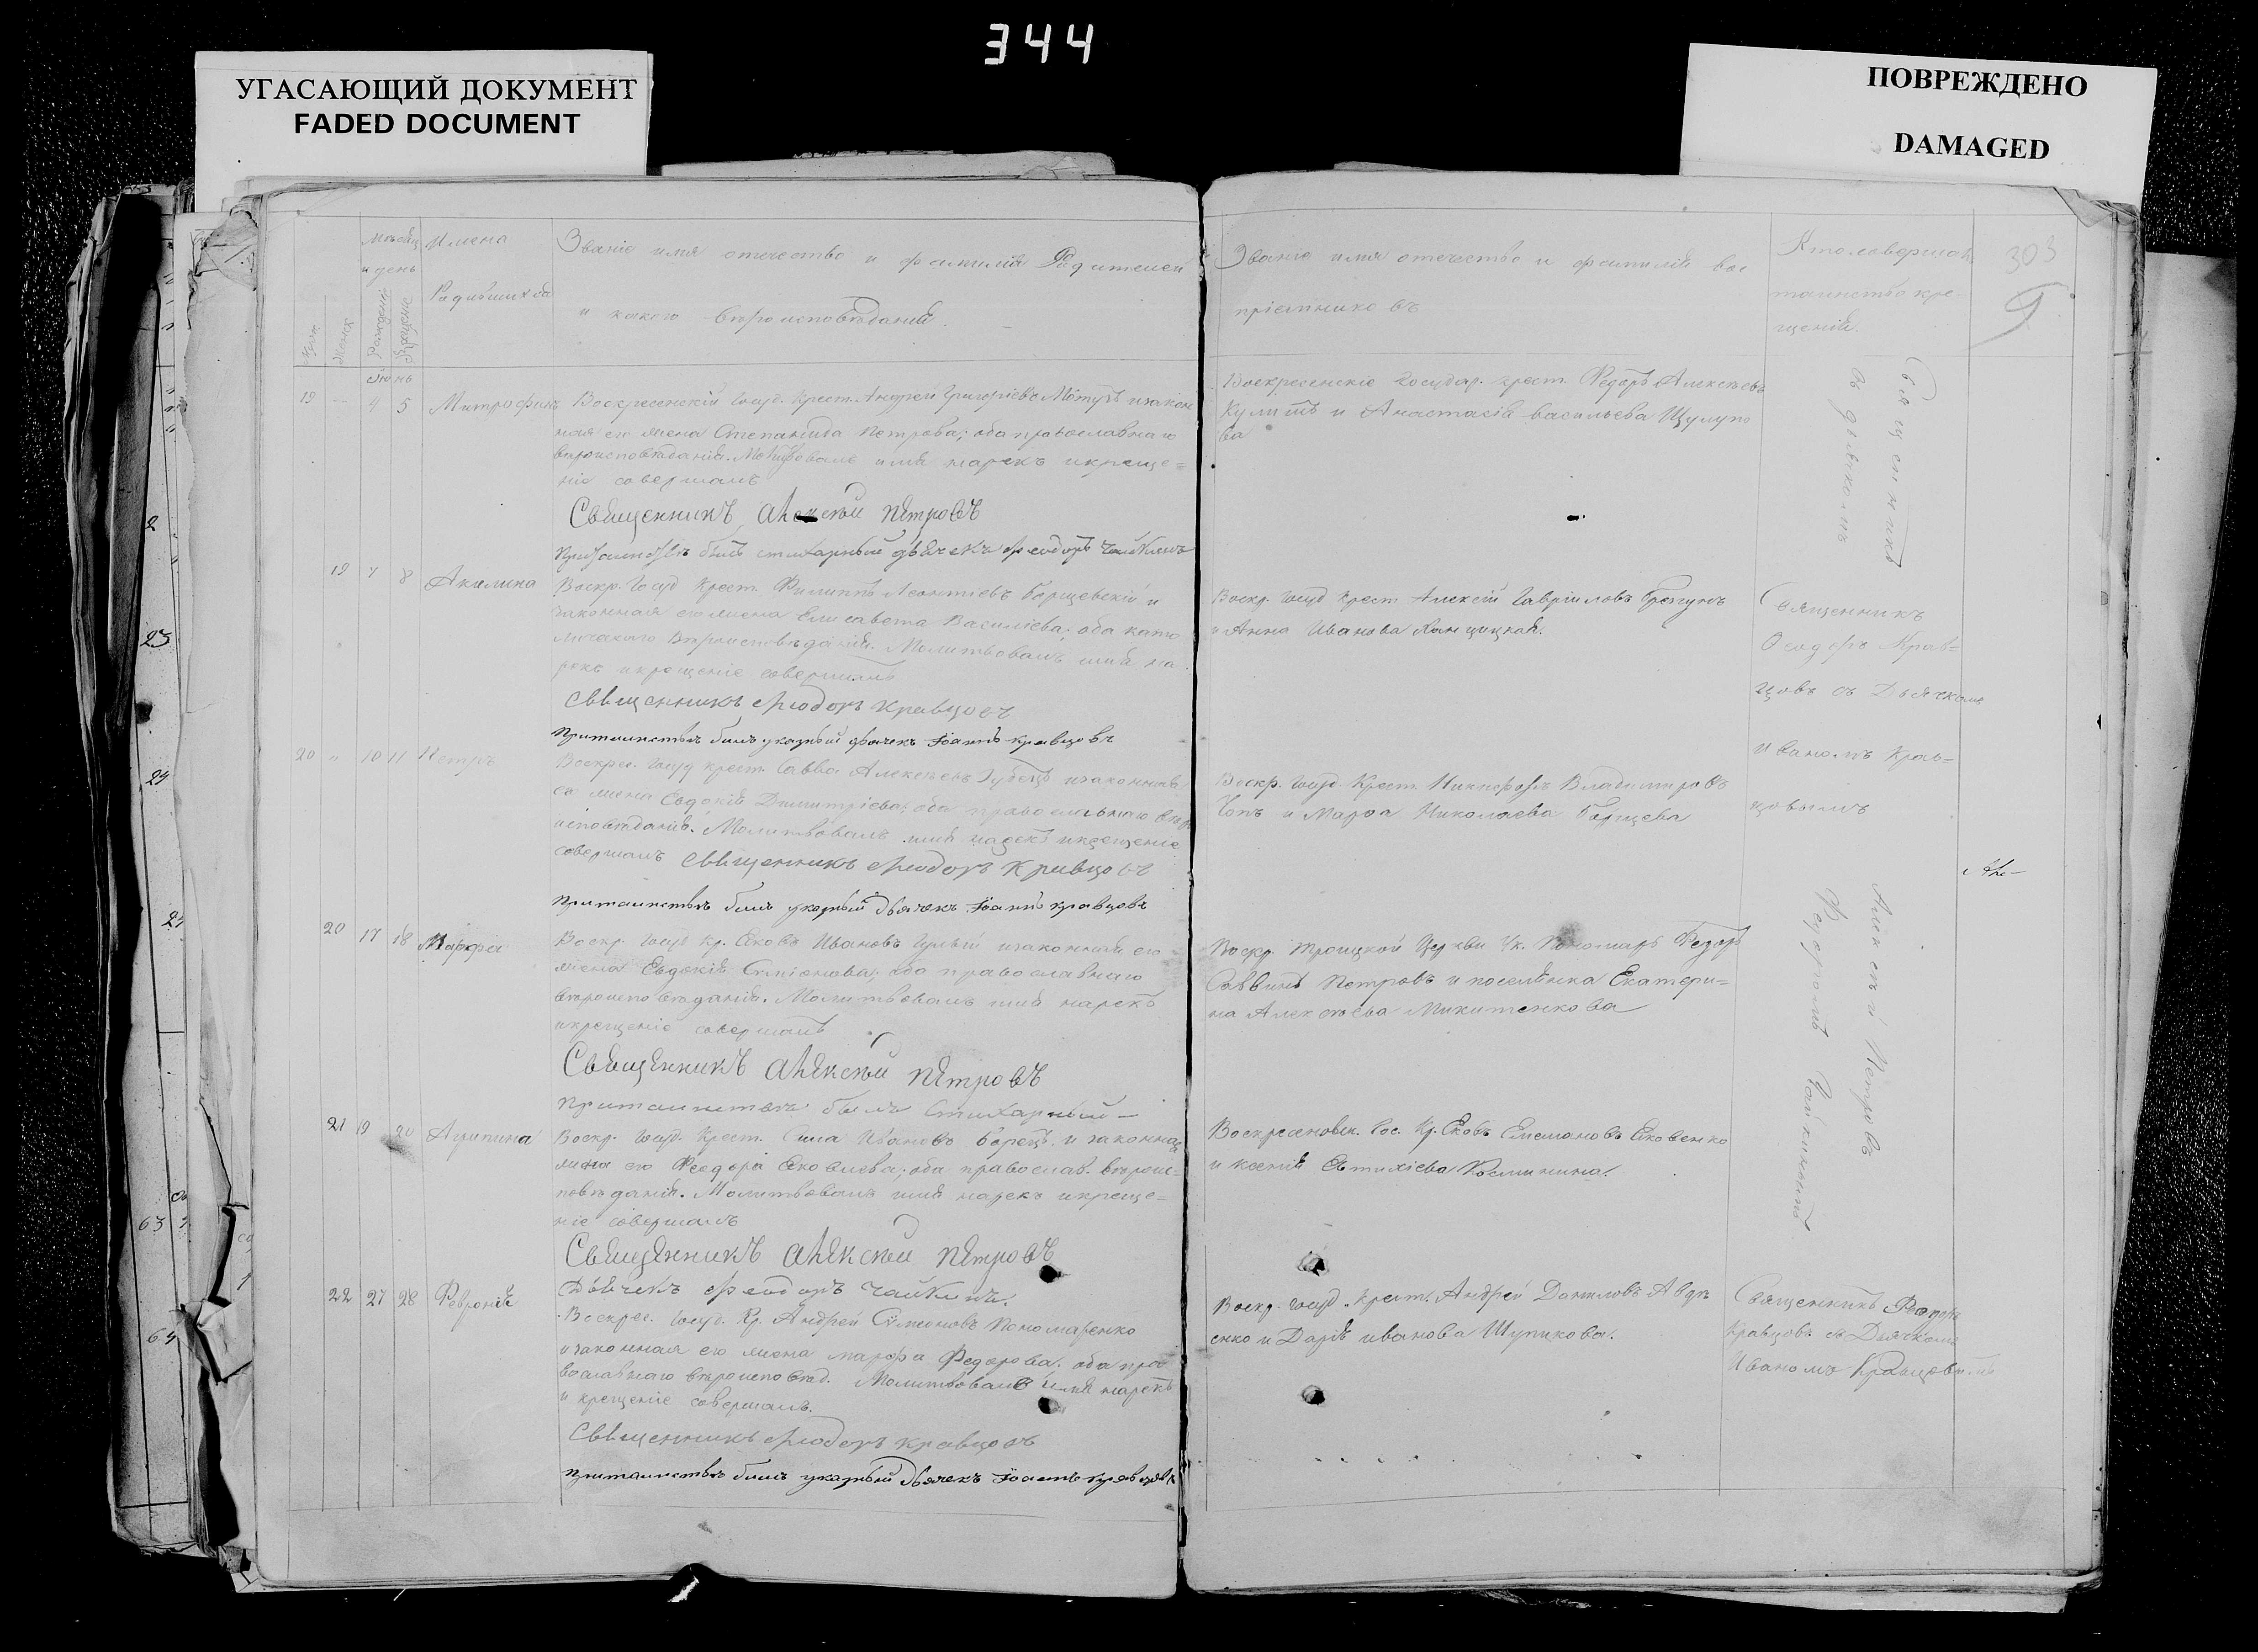 344
УГАСАЮЩИЙ ДОКУМЕНТ
FADED DOCUMENT
ПОВРЕЖДЕНО
DAMAGED
Мѣсяц
и день
Рожденія
Крещенія
Имена
Родившихся
Званіе имя отечество и фамилія Родителей
и какого вѣроисповѣданія
Іюнь
19 4 5 Митрофанъ
Воскресенскій Госуд. Крест. Андрей Григоріевъ и закон
ная его жена Степанида Петрова; оба православнаго
вѣроисповѣданія. Молитвовалъ имя нарекъ и креще=
ніе совершалъ
Священникъ Алексѣй Петровъ
При таинствѣ былъ стихарный дьячекъ Феодоръ Чайкинъ
19 7 8 Акилина
Воскр. Госуд Крест. Филиппъ Леонтіевъ Борщевскій и
законная его жена Елисавета Василіева; оба като
лическаго Вѣроисповѣданія. Молитвовалъ имя на
рекъ и крещеніе совершалъ
Священникъ Феодоръ Кравцовъ
При таинствѣ былъ указный дьячекъ Іоаннъ Кравцовъ
20 " 10 11 Петръ
Воскрес. Госуд крест. Савва Алексѣевъ Губецъ и законная
его жена Евдокія Димитріева; оба православнаго вѣро
исповѣданія. Молитвовалъ имя нарекъ и крещеніе
совершалъ Священникъ Феодоръ Кравцовъ
При таинствѣ былъ указный дьячекъ Іоаннъ Кравцовъ
20 17 18 Марфа
Воскр. Госуд Кр. Яковъ Ивановъ и законная его
жена Евдокія Симіонова; оба православнаго
вѣроисповѣданія. Молитвовалъ имя нарекъ
и крещеніе совершалъ
Священникъ Алексѣй Петровъ
При таинствѣ былъ Стихарный —
21 19 20 Агрипина
Воскр. Госуд. Крест. Сила Ивановъ Борецъ и законная
жена его Феодора Яковлева; оба православ. вѣроис-
повѣданія. Молитвовалъ имя нарекъ и креще=
ніе совершалъ
Священникъ Алексѣй Петровъ
Дьячекъ Феодоръ Чайкинъ.
22 27 28 Февронія
Воскрес. Госуд. Кр. Андрей Симеоновъ Пономаренко
и законная его жена Марфа Федорова. оба пра
вославнаго вѣроисповѣд. Молитвовалъ имя нарекъ
и крещеніе совершалъ.
Священникъ Феодоръ Кравцовъ
При таинствѣ былъ указный дьячекъ Іоаннъ Кравцовъ
Званіе имя отечество и фамилія вос
пріемниковъ
Кто совершалъ
таинство кре-
щенія.
303
9
Воскресенскіе Государ. крест. Федоръ Алексѣевъ
Кулишъ и Анастасія Васильева Щулупо
ва
Священникъ
съ дьячкомъ
Воскр. Госуд Крест Алексѣй Гавріиловъ
и Анна Иванова
Священникъ
Феодоръ Крав=
цовъ съ Дьячкомъ
Иваномъ Крав=
цовымъ
Воскр. Госуд. Крест. Никифоръ Владимировъ
Чопъ и Марфа Николаева Борщева
Воскр. Троицкой Церкви Ук. Пономарь Федоръ
Саввинъ Петровъ и поселянка Екатери=
на Алексѣева Микитенкова
Алексѣй Петровъ
Феодоромъ Чайкинымъ
Воскресенск. Гос. Кр. Яковъ Емельяновъ Яковенко
и Ксенія Евтихіева
Воскр. Госуд. Крест. Андрей Даниловъ Авдѣ
енко и Дарія Иванова Шупикова.
Священникъ Феодоръ
Кравцовъ съ Дьячкомъ
Иваномъ Кравцовымъ